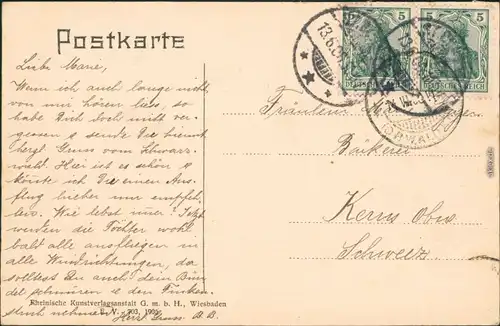 Postkarte
Liebe Marie,
Wenn ich auch lange nichts
von mir hören liess, so
habe Dich doch nicht ver-
gessen & sende Dir hiermit
herzl. Gruss vom Schwarz-
wald. Hier ist es schön &
könnte ich Dir einen Aus-
flug hieher nur empfeh-
len. Wie lebst immer? Jetzt
werden die Töchter wohl
bald alle ausfliegen in
alle Windrichtungen, da
solltest Du auch dein Bün-
del schnüren & den Finken-
strich nehmen. Herzl. Gruss B.B.
Rheinische Kunstverlagsanstalt G. m. b. H., Wiesbaden
1909
5
5
13.6.09
Fräulein
Bäckerei
Kerns Obw.
Schweiz